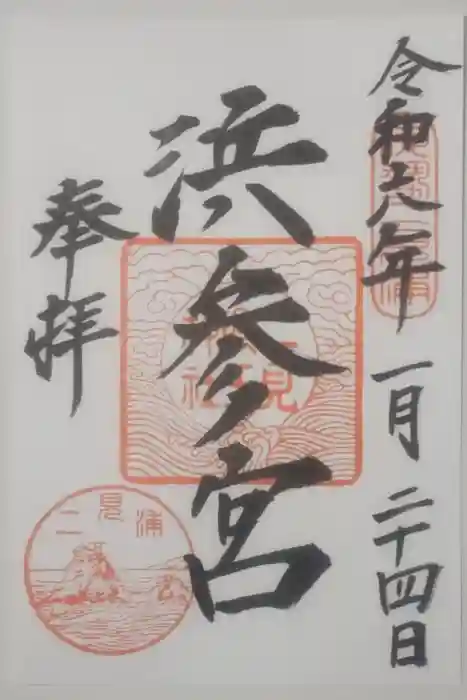 令和六年 一月 二十四日
伊勢二見浦
浜参宮
二見
興玉
神社
奉拝
二見浦